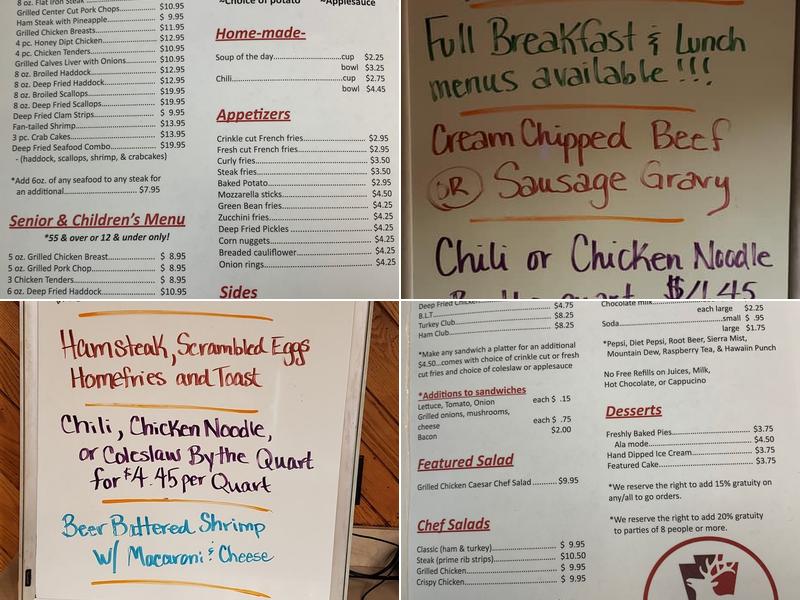 8 oz. Flat Iron Steak
Grilled Center Cut Pork Chops $10.95
Ham Steak with Pineapple $ 9.95
Grilled Chicken Breasts $11.95
4 pc. Honey Dipt Chicken $12.95
4 pc. Chicken Tenders $10.95
Grilled Calves Liver with Onions $10.95
8 oz. Broiled Haddock $12.95
8 oz. Deep Fried Haddock $12.95
8 oz. Broiled Scallops $19.95
8 oz. Deep Fried Scallops $19.95
Deep Fried Clam Strips $ 9.95
Fan-tailed Shrimp $13.95
3 pc. Crab Cakes $13.95
Deep Fried Seafood Combo $19.95
- (haddock, scallops, shrimp, & crabcakes)
*Add 6oz. of any seafood to any steak for
an additional $7.95
Senior & Children's Menu
*55 & over or 12 & under only!
5 oz. Grilled Chicken Breast $ 8.95
5 oz. Grilled Pork Chop $ 8.95
3 Chicken Tenders $ 8.95
6 oz. Deep Fried Haddock $10.95
~Choice of potato ~Applesauce
Home-made-
Soup of the day cup $2.25
bowl $3.25
Chili cup $2.75
bowl $4.45
Appetizers
Crinkle cut French fries $2.95
Fresh cut French fries $2.95
Curly fries $3.50
Steak fries $3.50
Baked Potato $2.95
Mozzarella sticks $4.50
Green Bean fries $4.25
Zucchini fries $4.25
Deep Fried Pickles $4.25
Corn nuggets $4.25
Breaded cauliflower $4.25
Onion rings $4.25
Sides
Full Breakfast & Lunch
menus available!!!
Cream Chipped Beef
OR Sausage Gravy
Chili or Chicken Noodle
By the quart $4.45
Hamsteak, Scrambled Eggs
Homefries and Toast
Chili, Chicken Noodle,
or Coleslaw By the Quart
for $4.45 per Quart
Beer Battered Shrimp
w/ Macaroni & Cheese
Deep Fried Chicken $4.75
B.L.T. $8.25
Turkey Club $8.25
Ham Club
*Make any sandwich a platter for an additional
$4.50...comes with choice of crinkle cut or fresh
cut fries and choice of coleslaw or applesauce
*Additions to sandwiches
Lettuce, Tomato, Onion each $ .15
Grilled onions, mushrooms,
cheese each $ .75
Bacon $2.00
Featured Salad
Grilled Chicken Caesar Chef Salad $9.95
Chef Salads
Classic (ham & turkey) $ 9.95
Steak (prime rib strips) $10.50
Grilled Chicken $ 9.95
Crispy Chicken $ 9.95
Chocolate milk
each large $2.25
Soda small $ .95
large $1.75
*Pepsi, Diet Pepsi, Root Beer, Sierra Mist,
Mountain Dew, Raspberry Tea, & Hawaiin Punch
No Free Refills on Juices, Milk,
Hot Chocolate, or Cappucino
Desserts
Freshly Baked Pies $3.75
Ala mode $4.50
Hand Dipped Ice Cream $3.75
Featured Cake $3.75
*We reserve the right to add 15% gratuity on
any/all to go orders.
*We reserve the right to add 20% gratuity
to parties of 8 people or more.